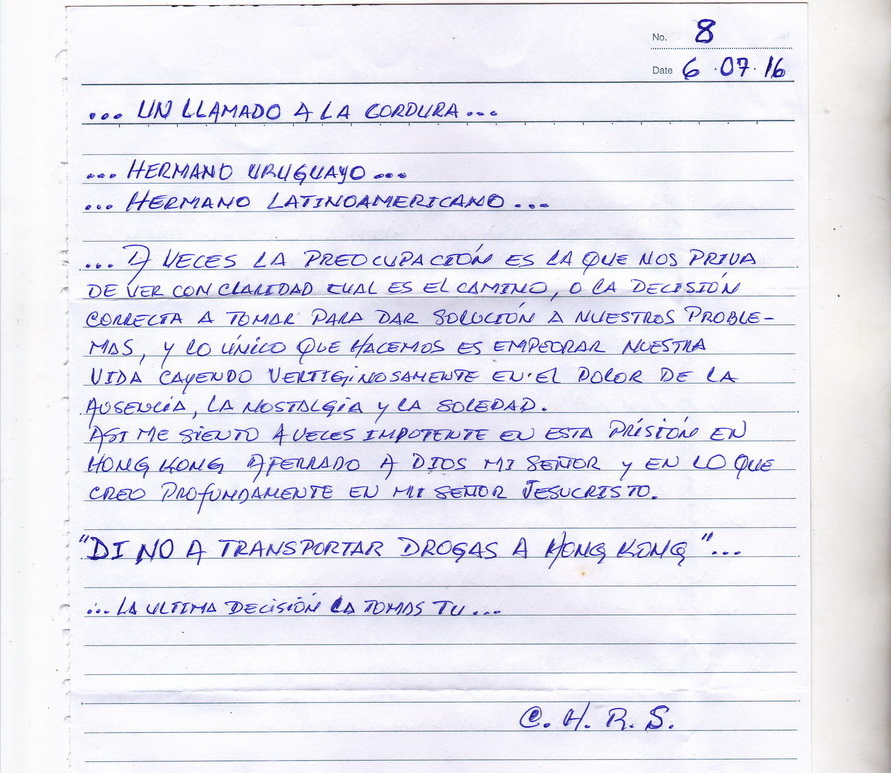 No. 8
Date 6 .07.16
... UN LLAMADO A LA CORDURA ...
... HERMANO URUGUAYO ...
... HERMANO LATINOAMERICANO ...
... A VECES LA PREOCUPACIÓN ES LA QUE NOS PRIVA
DE VER CON CLARIDAD CUAL ES EL CAMINO, O LA DECISIÓN
CORRECTA A TOMAR PARA DAR SOLUCIÓN A NUESTROS PROBLE-
MAS, Y LO ÚNICO QUE HACEMOS ES EMPEORAR NUESTRA
VIDA CAYENDO VERTIGINOSAMENTE EN EL DOLOR DE LA
AUSENCIA, LA NOSTALGIA Y LA SOLEDAD.
ASI ME SIENTO A VECES IMPOTENTE EN ESTA PRISIÓN EN
HONG KONG AFERRADO A DIOS MI SEÑOR Y EN LO QUE
CREO PROFUNDAMENTE EN MI SEÑOR JESUCRISTO.
"DI NO A TRANSPORTAR DROGAS A HONG KONG"...
... LA ULTIMA DECISIÓN LA TOMAS TU ...
C. H. R. S.